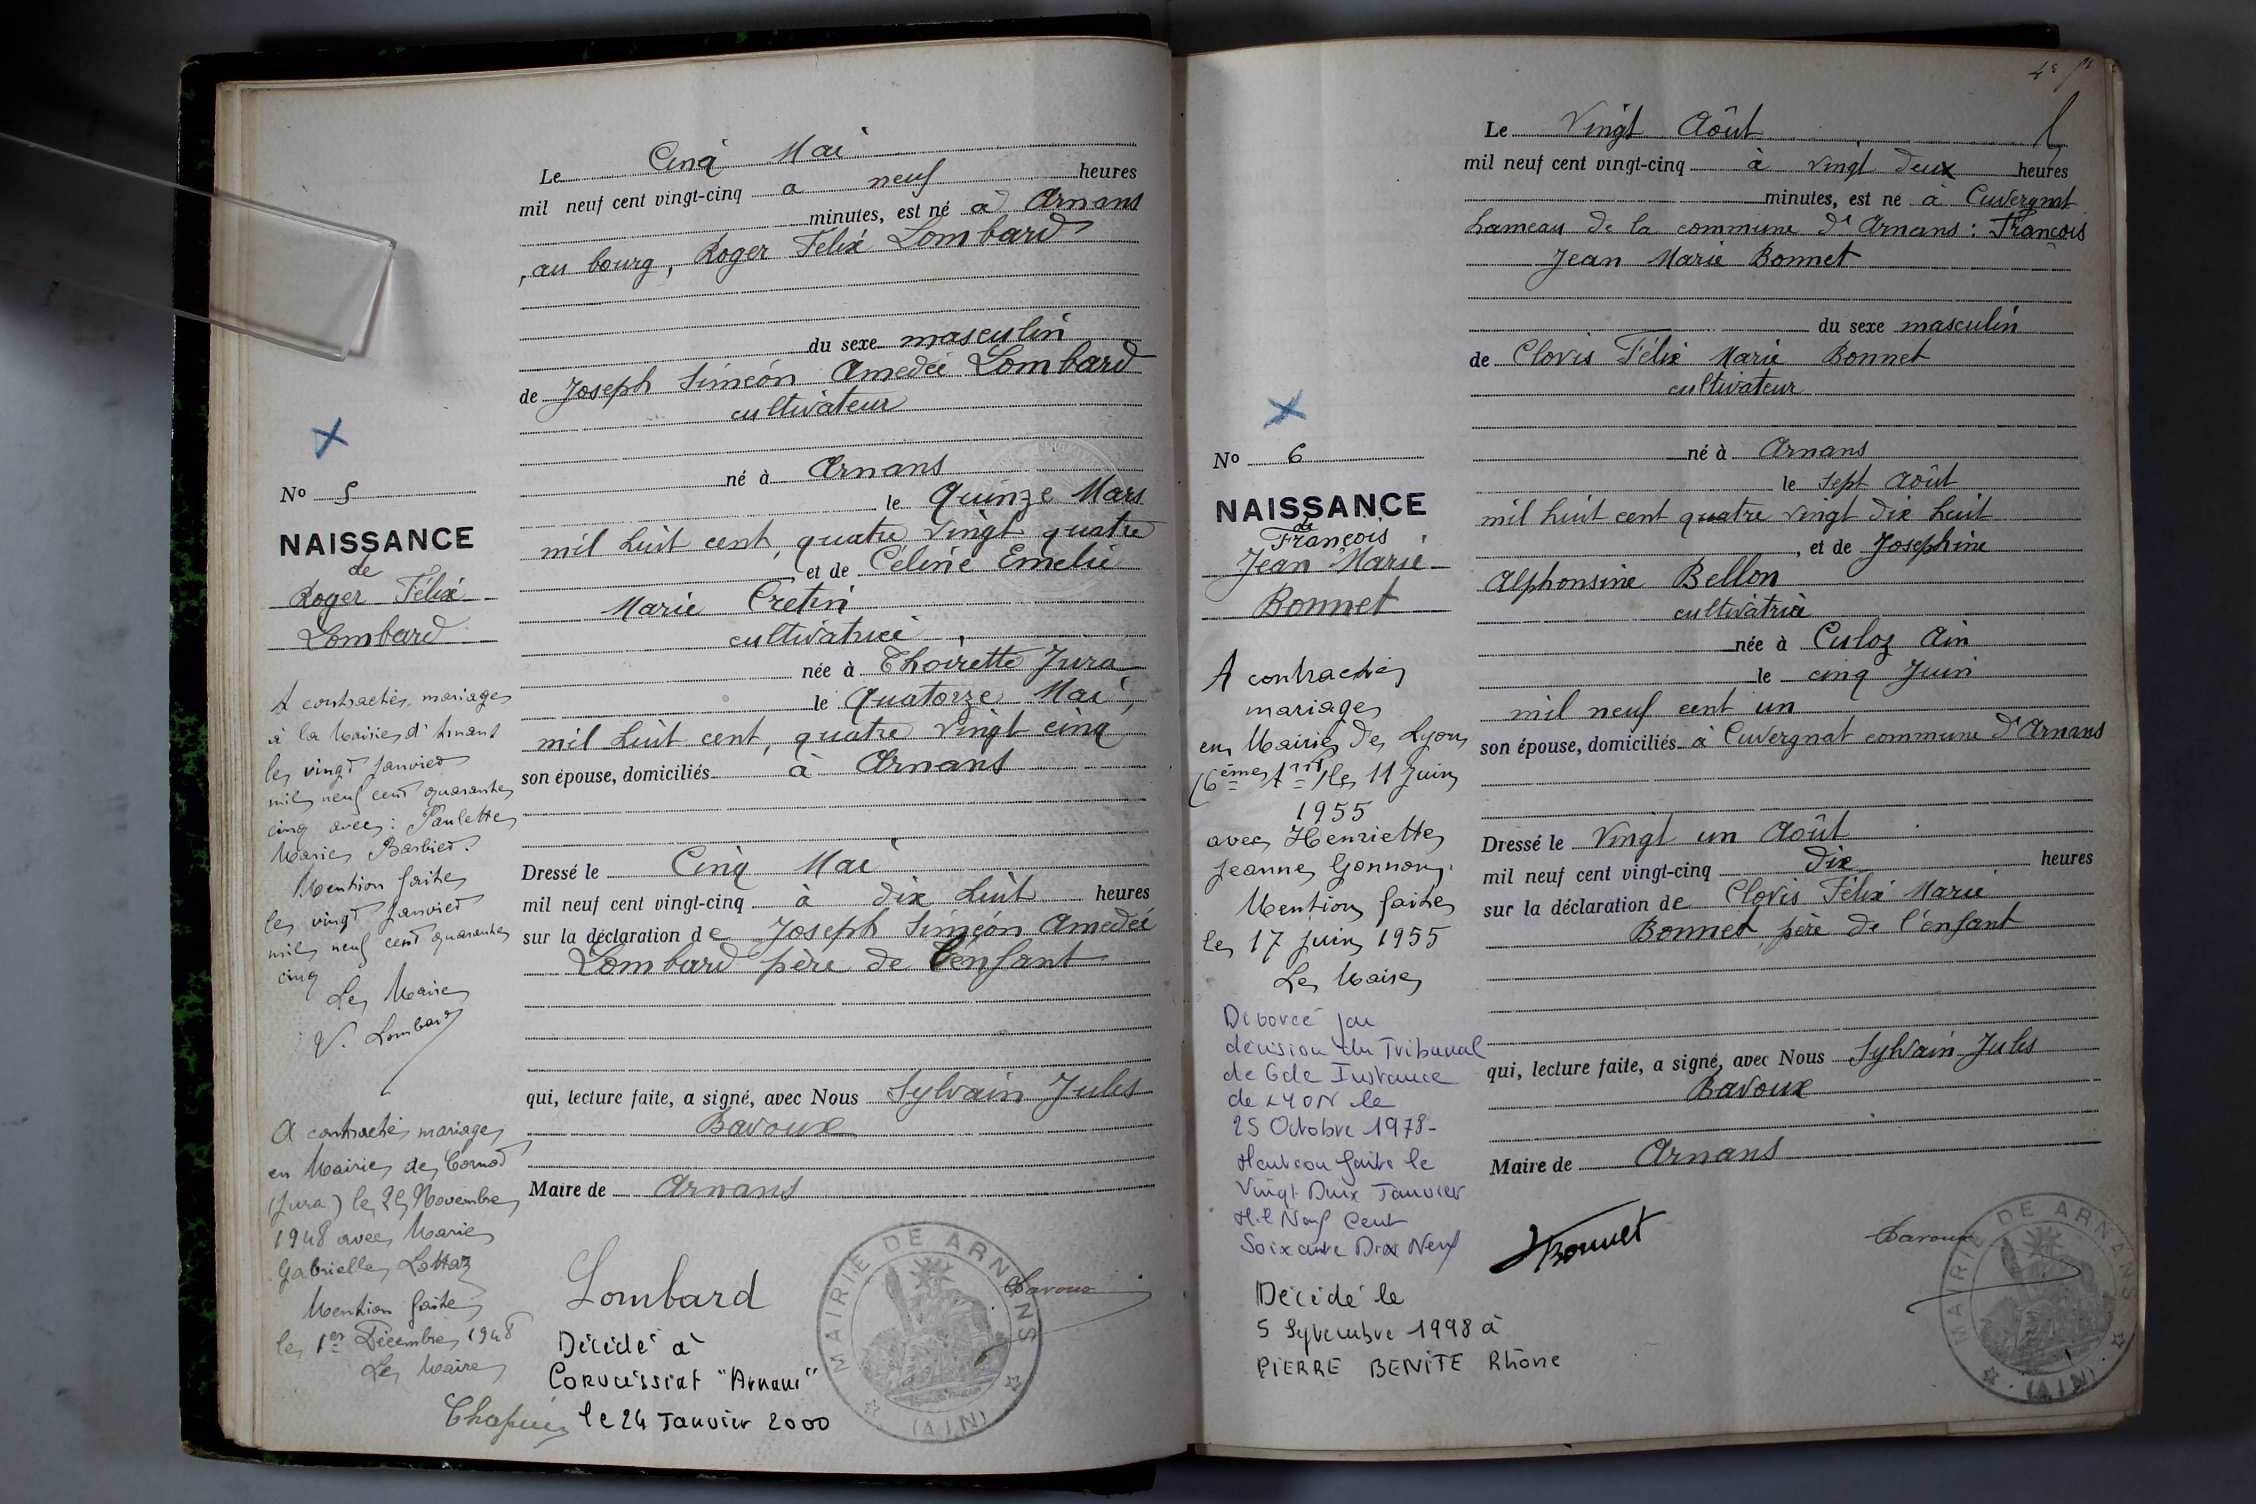 Le Cinq Mai
mil neuf cent vingt-cinq a neuf heures
minutes, est né à Arnans
, au bourg, Roger Félix Lombard
du sexe masculin
de Joseph Siméon Amedée Lombard
cultivateur
né à Arnans
le Quinze Mars
mil huit cent, quatre vingt quatre
et de Céline Emelie
Marie Cretin
cultivatrice
née à Thoirette Jura
le Quatorze Mai,
mil huit cent, quatre vingt cinq
son épouse, domiciliés à Arnans
Dressé le Cinq Mai
mil neuf cent vingt-cinq à dix huit heures
sur la déclaration de Joseph Siméon Amedée
Lombard père de l'enfant
qui, lecture faite, a signé, avec Nous Sylvain Jules
Bavoux
Maire de Arnans
Lombard
Bavoux
MAIRIE DE ARNANS
(AIN)
Décédé à
Corveissiat "Arnans"
le 24 Janvier 2000
No 5
NAISSANCE
de
Roger Félix
Lombard
A contracté mariage
à la Mairie d'Arnans
le vingt janvier
mil neuf cent quarante
cinq avec : Paulette
Marie Barbier.
Mention faite
le vingt janvier
mil neuf cent quarante
cinq
Le Maire
V. Lombard
A contracté mariage
en Mairie de Cornod
(Jura) le Novembre
1948 avec Marie
Gabrielle Lottaz
Mention faite
le 1er Décembre 1948
Le Maire
4e
Le Vingt Août
mil neuf cent vingt-cinq à vingt deux heures
minutes, est né à Cuvergnat
hameau de la commune d'Arnans : François
Jean Marie Bonnet
du sexe masculin
de Clovis Félix Marie Bonnet
cultivateur
né à Arnans
le sept Août
mil huit cent quatre vingt dix huit
, et de Josephine
Alphonsine Bellon
cultivatrice
née à Culoz Ain
le cinq Juin
mil neuf cent un
son épouse, domiciliés à Cuvergnat commune d'Arnans
Dressé le Vingt un Août
mil neuf cent vingt-cinq dix heures
sur la déclaration de Clovis Félix Marie
Bonnet père de l'enfant
qui, lecture faite, a signé, avec Nous Sylvain Jules
Bavoux
Maire de Arnans
Bonnet
Bavoux
MAIRIE DE ARNANS
(AIN)
No 6
NAISSANCE
de
François
Jean Marie
Bonnet
A contracté
mariage
en Mairie de Lyon
(6ème Arrt) le 11 Juin
1955
avec Henriette
Jeanne Gonnon.
Mention faite
le 17 juin 1955
Le Maire
Divorcé par
décision du Tribunal
de Gde Instance
de LYON le
25 Octobre 1978-
Mention faite le
Vingt Deux Janvier
Mil Neuf Cent
Soixante Dix Neuf
Décédé le
5 Septembre 1998 à
PIERRE BENITE Rhône